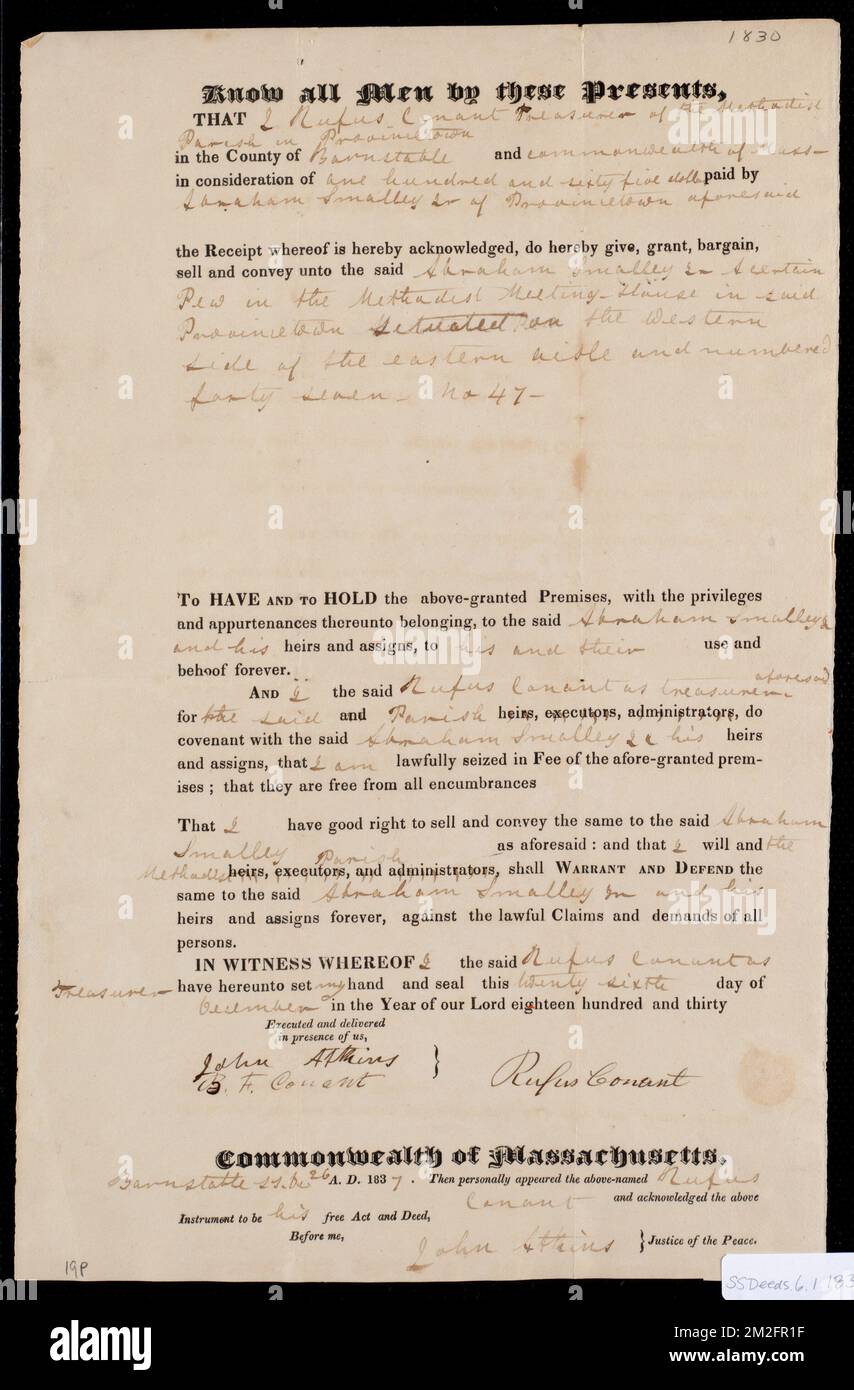 1830
Know all Men by these Presents,
THAT I Rufus Conant Treasurer of the Methodist
Parish in Provincetown
in the County of Barnstable and commonwealth of Mass-
in consideration of one hundred and sixty five dolls paid by
Abraham Smalley Jr of Provincetown aforesaid
the Receipt whereof is hereby acknowledged, do hereby give, grant, bargain,
sell and convey unto the said Abraham Smalley Jr A certain
Pew in the Methodist Meeting-House in said
Provincetown Situated on the western
side of the eastern aisle and numbered
forty seven - No 47 -
To HAVE AND TO HOLD the above-granted Premises, with the privileges
and appurtenances thereunto belonging, to the said Abraham Smalley Jr
and his heirs and assigns, to his and their use and
behoof forever.
aforesaid
AND I the said Rufus Conant as treasurer
for the said and Parish heirs, executors, administrators, do
covenant with the said Abraham Smalley Jr & his heirs
and assigns, that I am lawfully seized in Fee of the afore-granted prem-
ises ; that they are free from all encumbrances
That I have good right to sell and convey the same to the said Abraham
Smalley as aforesaid : and that I will and the
Methodist Parish heirs, executors, and administrators, shall WARRANT AND DEFEND the
same to the said Abraham Smalley Jr and his
heirs and assigns forever, against the lawful Claims and demands of all
persons.
IN WITNESS WHEREOF I the said Rufus Conant as
Treasurer have hereunto set my hand and seal this twenty sixth day of
December in the Year of our Lord eighteen hundred and thirty
Executed and delivered
in presence of us,
John Atkins
B. F. Conant } Rufus Conant
Commonwealth of Massachusetts.
Barnstable SS. De 26 A. D. 1837. Then personally appeared the above-named Rufus
Conant and acknowledged the above
Instrument to be his free Act and Deed,
Before me,
John Atkins } Justice of the Peace.
19P
SSDeeds.6.1.183
alamy
Image ID: 2M2FR1F
www.alamy.com